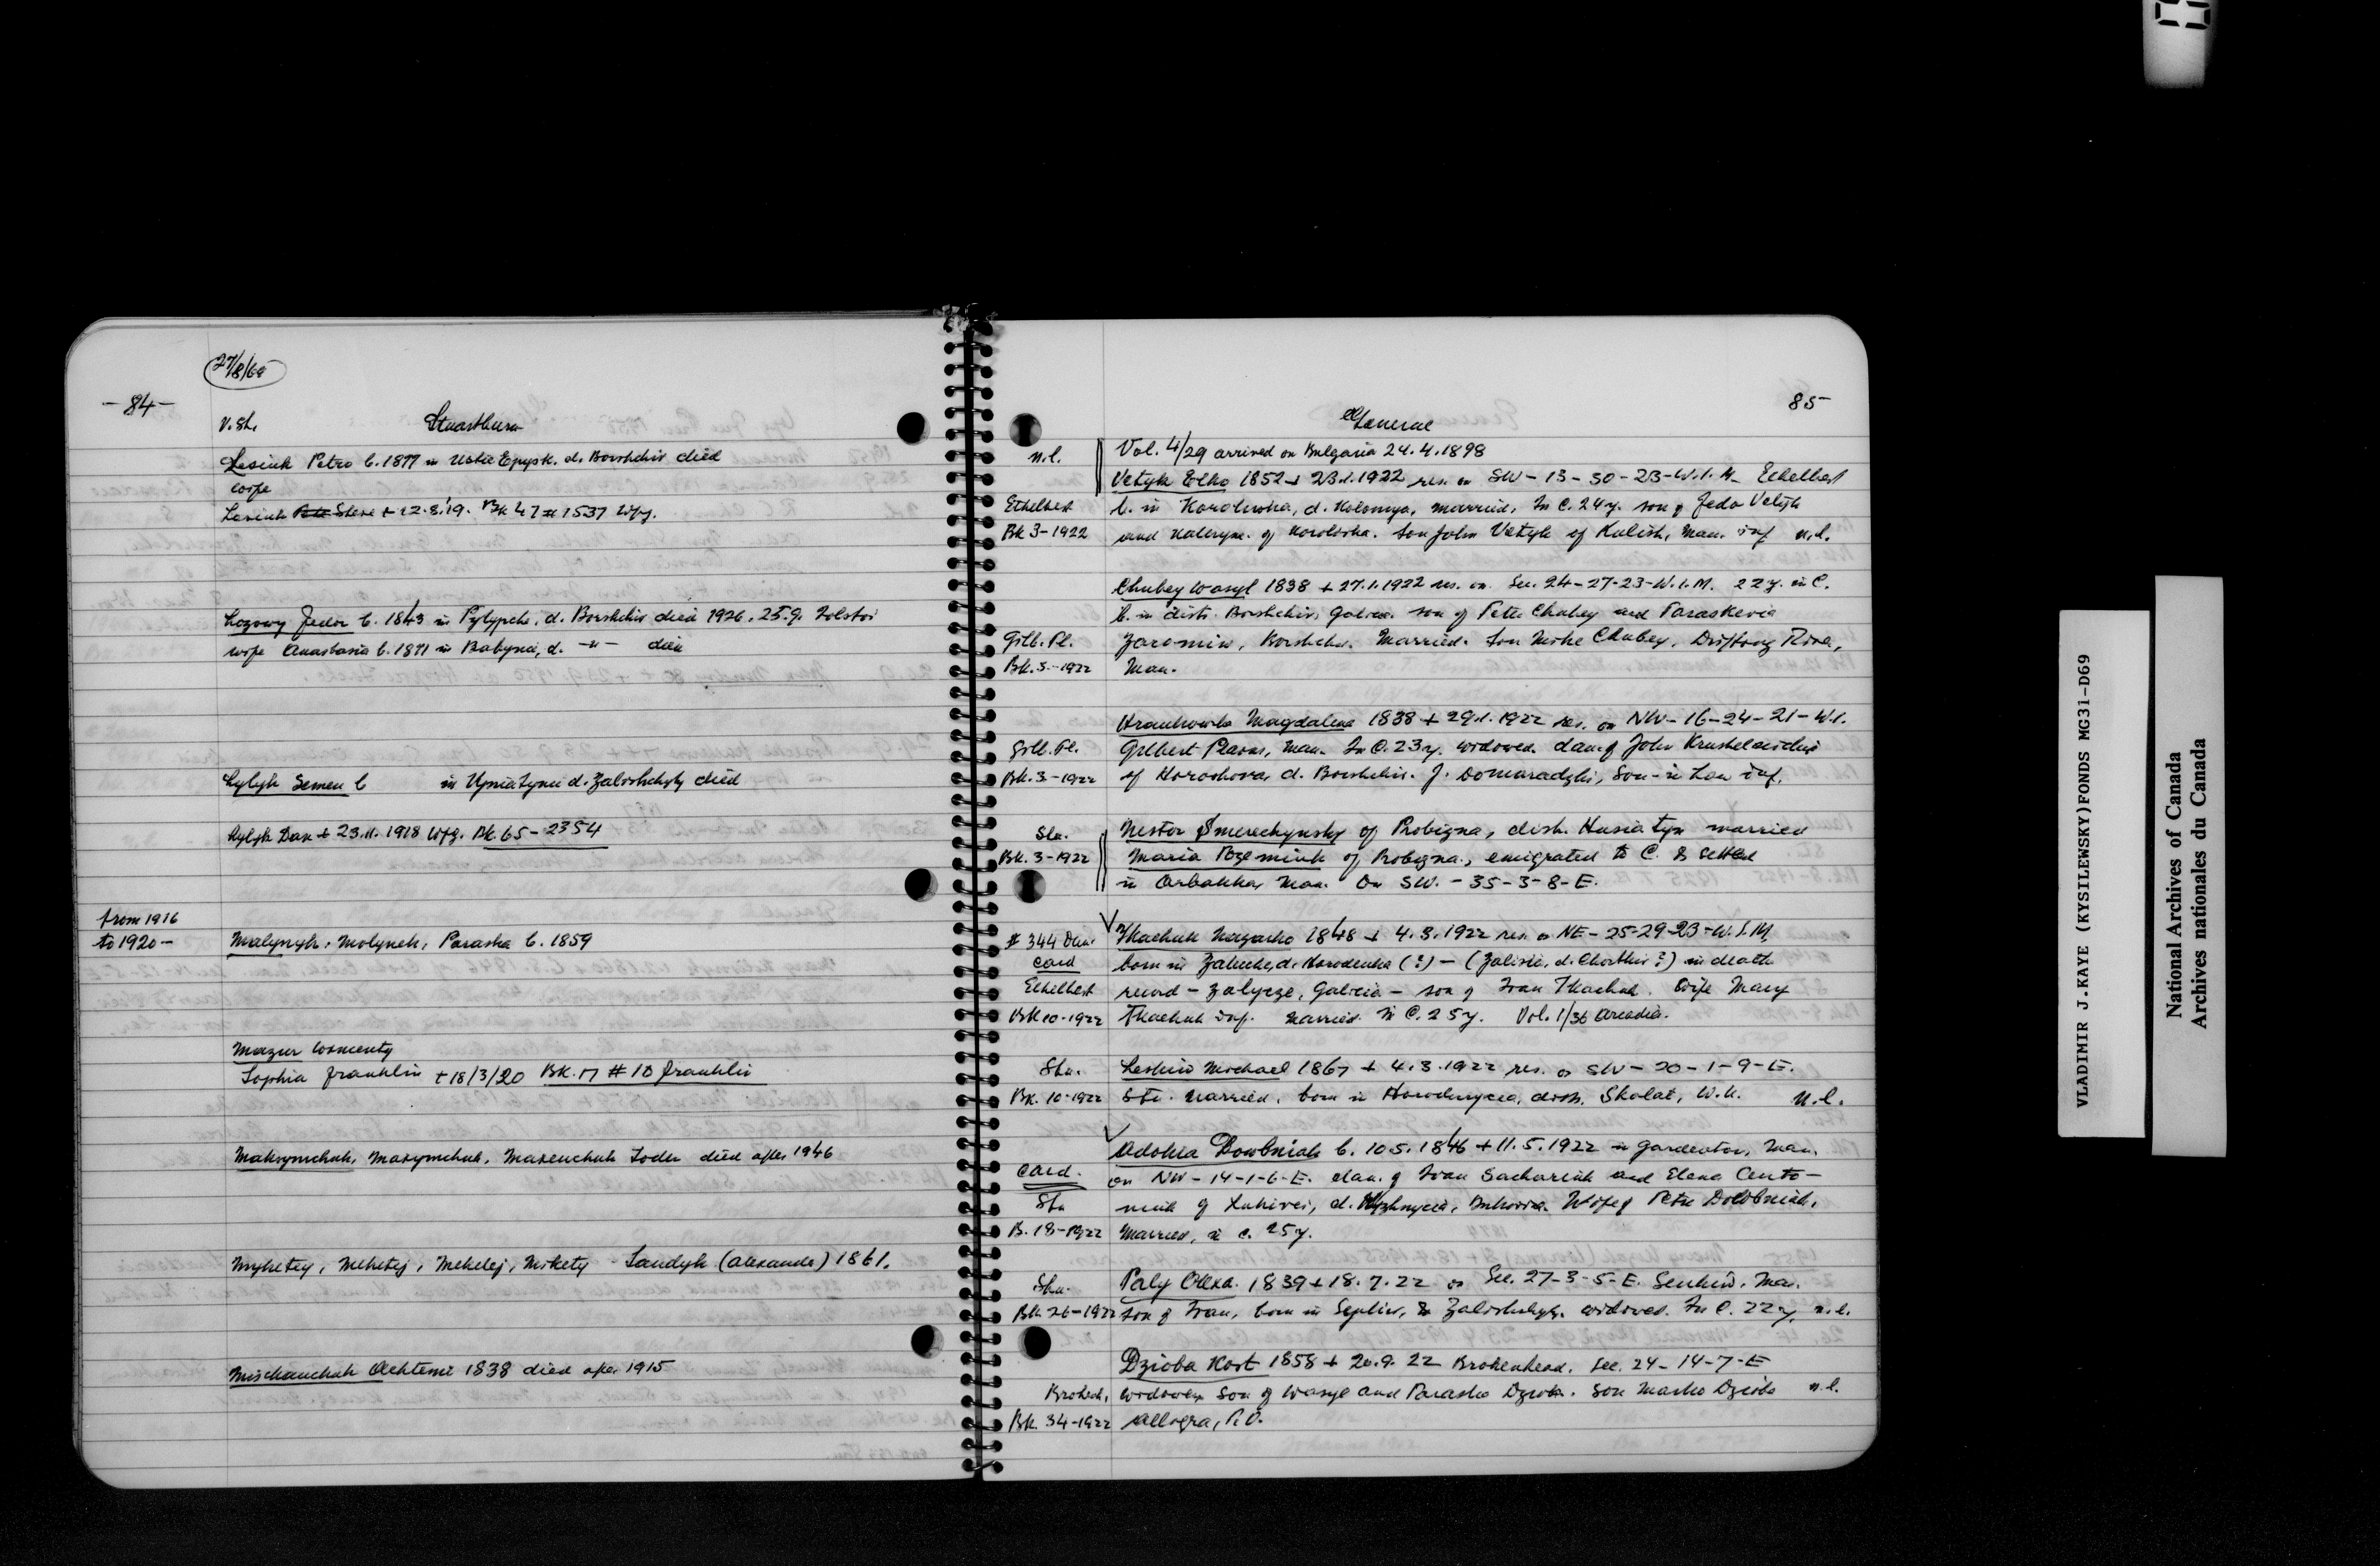 27/8/69
- 84 -
V. St. Stuartburn
Lesiuk Petro b. 1877 in Ustie Epysk. d. Borshchiv died
wife
Lesiuk Steve + 12.8.'19. Bk 47 # 1537 Wpg.
Lozowy Fedor b. 1843 in Pylypche, d. Borshchiv died 1926. 25.9. Tolstoi
wife Anastasia b. 1871 in Babynci, d. -"- died
Lylyk Semen b in d. Zalishchyky died
Lylyk Dan + 23.11. 1918 Wpg. Bk. 65 - 2354
from 1916
to 1920 - Malynyk, Molynek, Paraska b. 1859
Mazur
Sophia Franklin + 18/3/20 Bk. 17 # 10 Franklin
Maksymchuk, Maxymchuk, Maxenchuk Toder died after 1946
Myketey, Meketej, Mekelej, Mikety - Sandyk (Alexander) 1861.
Mischanchuk Achtemi 1838 died after 1915
85
General
n.l. Vol. 4/29 arrived on Bulgaria 24.4.1898
Vetyk Elko 1852 + 23.1.1922 res. on SW - 13 - 30 - 23 - W.1.M. Ethelbert
Ethelbert b. in d. Kolomya, married, In C. 24 y. son of Fedo Vetyk
Bk 3-1922 and Kateryna of Korolivka. Son John Vetyk of Kulish, Man. inf n.l.
Chubey Wasyl 1838 + 27.1.1922 res. on Sec. 24-27-23-W.1.M. 22 y. in C.
b. in distr. Borshchiv, Galicia. son of Peter Chubey and Paraskevia
Gilb. Pl. Jaremiw, Borshchiv. Married. Son Mike Chubey, Drifting River,
Bk. 3.-1922 Man.
Magdalena 1838 + 29.1.1922 res. on NW - 16 - 24 - 21 - W.1.
Gilb. Pl. Gilbert Plains, Man. In C. 23 y. widowed. dau. of John
Bk. 3.-1922 of Horoshova, d. Borshchiv. J. Domaradzki, Son-in Law inf.
Stu. Nestor Smerechynsky of Probizna, distr. Husiatyn married
Bk. 3-1922 Maria of Probizna, emigrated to C. & settled
in Arbakka, Man. On SW. - 35-3-8-E.
# 344 Dau. Tkachuk Nazarko 1848 + 4.3.1922 res. on NE - 25-29-23-W.1.M
card born in Zaluche, d. Horodenka (?) - (Zalisie, d. Chortkiv?) in death
Ethelbert record - Zalycze, Galicia - son of Ivan Tkachuk. Wife Mary
Bk 10-1922 Tkachuk inf. Married. In C. 25 y. Vol. 1/36 Arcadia.
Stu. Leskiw Michael 1867 + 4.3.1922 res. on SW - 20-1-9-E.
Bk. 10-1922 Stu. Married, born in distr. Skalat, W.U. n.l.
Adokia Dowbniak b. 10.5.1846 + 11.5.1922 in Gardenton, Man.
card. on NW - 14-1-6-E. dau. of Ivan Sachariuk and Elena
Stu of d. Vyzhnycia, Bukovina. Wife of Petro Dowbniak,
B. 18-1922 Married, in C. 25 y.
Stu. Paly Olexa. 1839 + 18.7.22 on Sec. 27-3-5-E. Senkiw, Man.
Bk. 26-1922 son of Ivan, born in d. Zalishchyky. widowed. In C. 22 y. n.l.
Dzioba Kost 1858 + 20.9.22 Brokenhead. Sec. 24-14-7-E
Brokenh. widower son of Wasyl and Paraska Dzioba. Son Marko Dzioba n.l.
Bk. 34-1922 Allegra, P.O.
VLADIMIR J.KAYE (KYSILEWSKY)FONDS MG31-D69
National Archives of Canada
Archives nationales du Canada